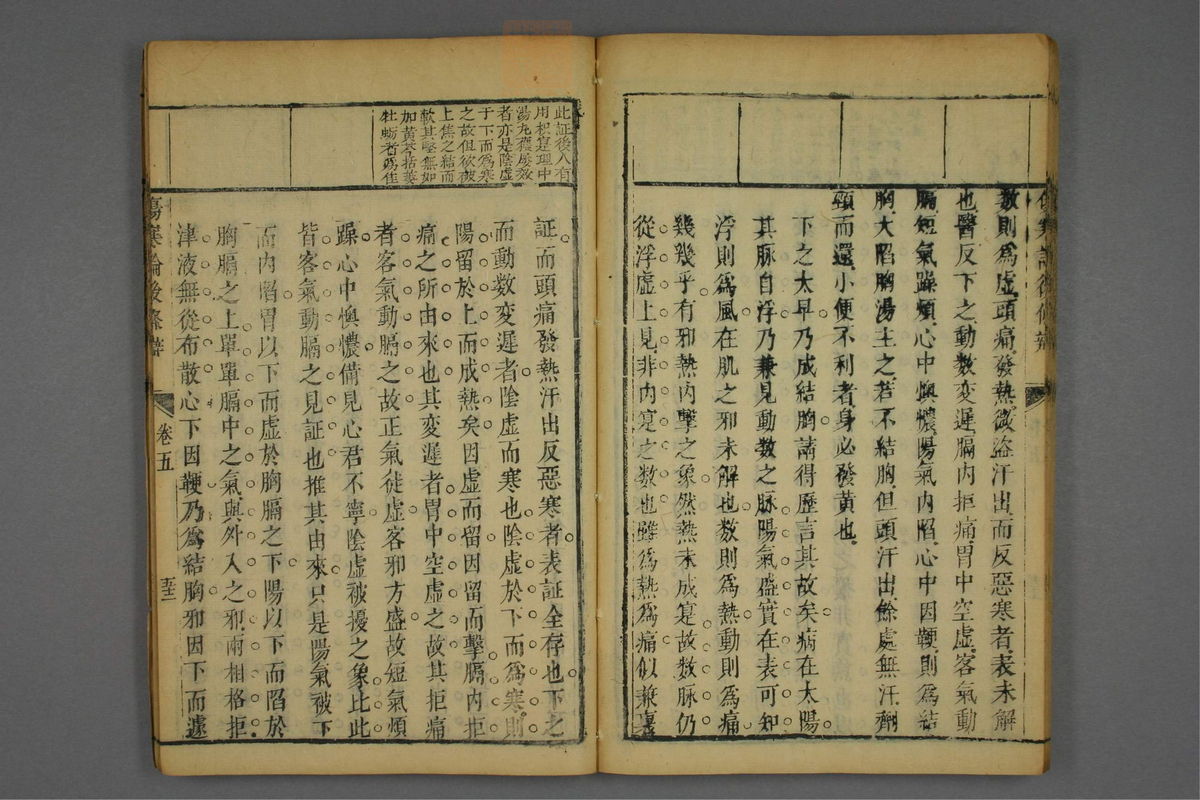 數則爲虛頭痛發熱微盜汗出而反惡寒者表未解
也醫反下之動數変遲膈内拒痛胃中空虛客氣動
膈短氣躁煩心中懊憹陽氣内陷心中因鞕則爲結
胸大陷胸湯主之若不結胸但頭汗出餘處無汗劑
頸而還小便不利者身必發黃也
下之太早乃成結胸請得歷言其故矣病在太陽
其脉自浮乃兼見動數之脉陽氣盛實在表可知
浮則爲風在肌之邪未解也数則爲熱動則爲痛
幾幾乎有邪熱内擊之象然熱未成寔故数脉仍
從浮虛上見非内寔之数也雖爲熱爲痛似兼裏
此証後人有
用枳寔理中
湯丸獲勝效
者亦是陰虛
于下而爲寒
之故但欲破
上焦之結而
軟其堅無如
加黃芩括蔞
牡蛎者爲佳
証而頭痛發熱汗出反惡寒者表証全存也下之
而動数変遲者陰虛而寒也陰虛於下而爲寒則
陽留於上而成熱矣因虛而留因留而擊膈内拒
痛之所由來也其変遲者胃中空虛之故其拒痛
者客氣動膈之故正氣徒虛客邪方盛故短氣煩
躁心中懊憹備見心君不寧陰虛被擾之象比此
皆客氣動膈之見証也推其由來只是陽氣被下
而内陷胃以下而虛於胸膈之下陽以下而陷於
胸膈之上單單膈中之氣與外入之邪兩相格拒
津液無從布散心下因鞕乃爲結胸邪因下而遽
傷寒論後條辨
卷五